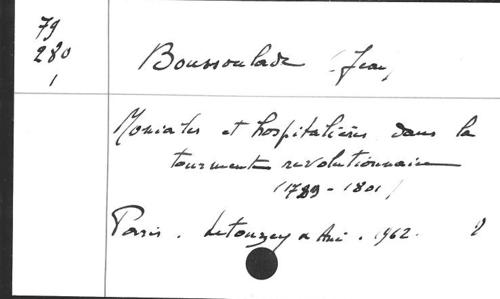 79
280
1
Boussoulade (Jean)
Moniales et hospitalières dans la
tourmente révolutionnaire
(1789-1801)
Paris. Letouzey & Ané. 1962.